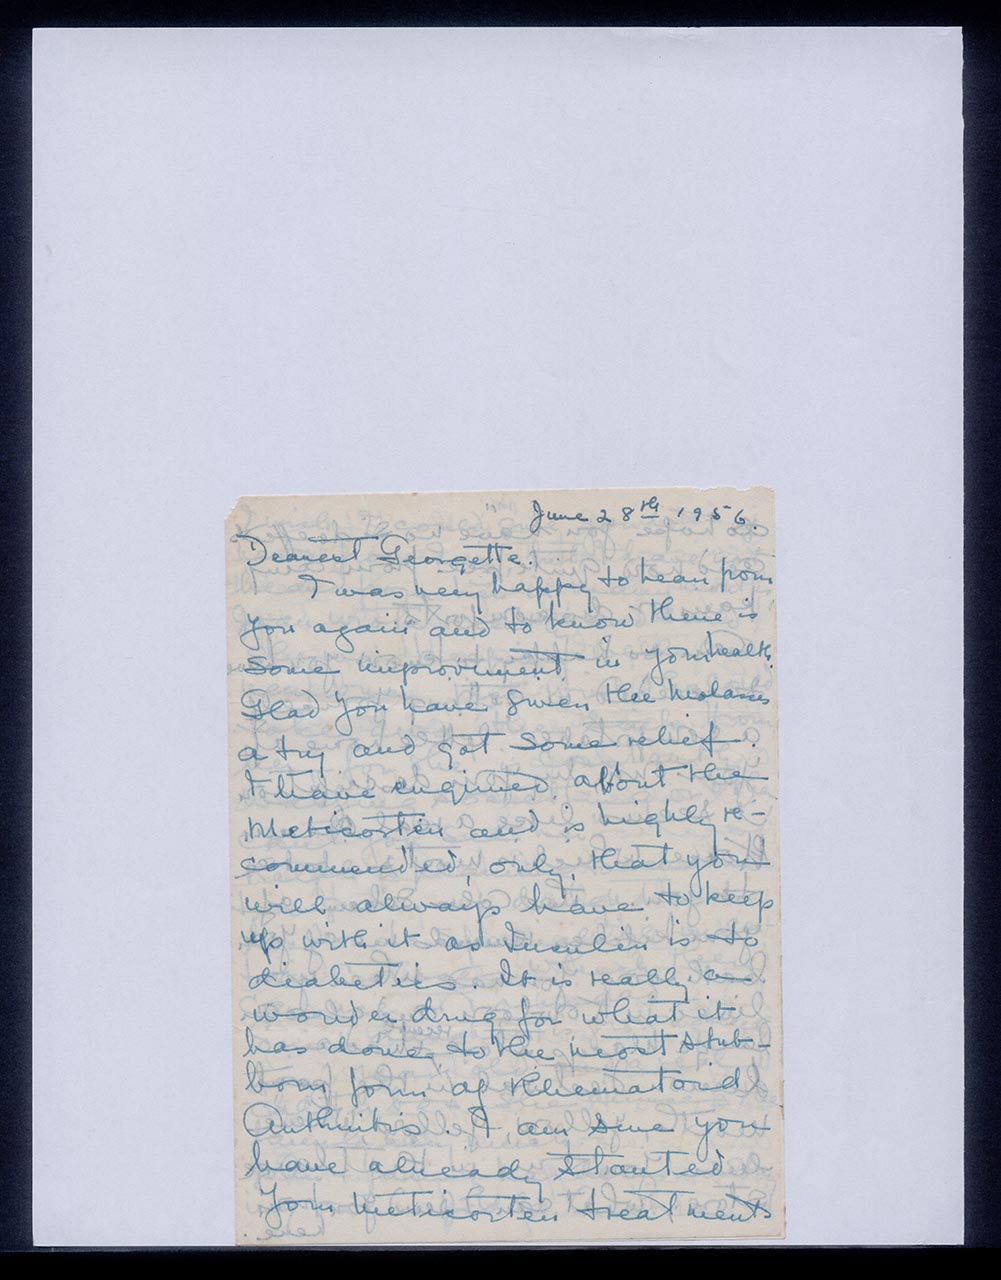 June 28th 1956.
Dearest Georgette.
I was very happy to hear from
you again and to know there is
some improvement in your health.
Glad you have given the Molasses
a try and got some relief.
I have enquired about the
Meticorten and is highly re-
commended, only, that you
will always have to keep
up with it as Insulin is to
diabetics. It is really a
wonder drug for what it
has done, to the most stub-
born form of Rhematoid
Arthritis. I am sure you
have already started
your Meticorten treatments